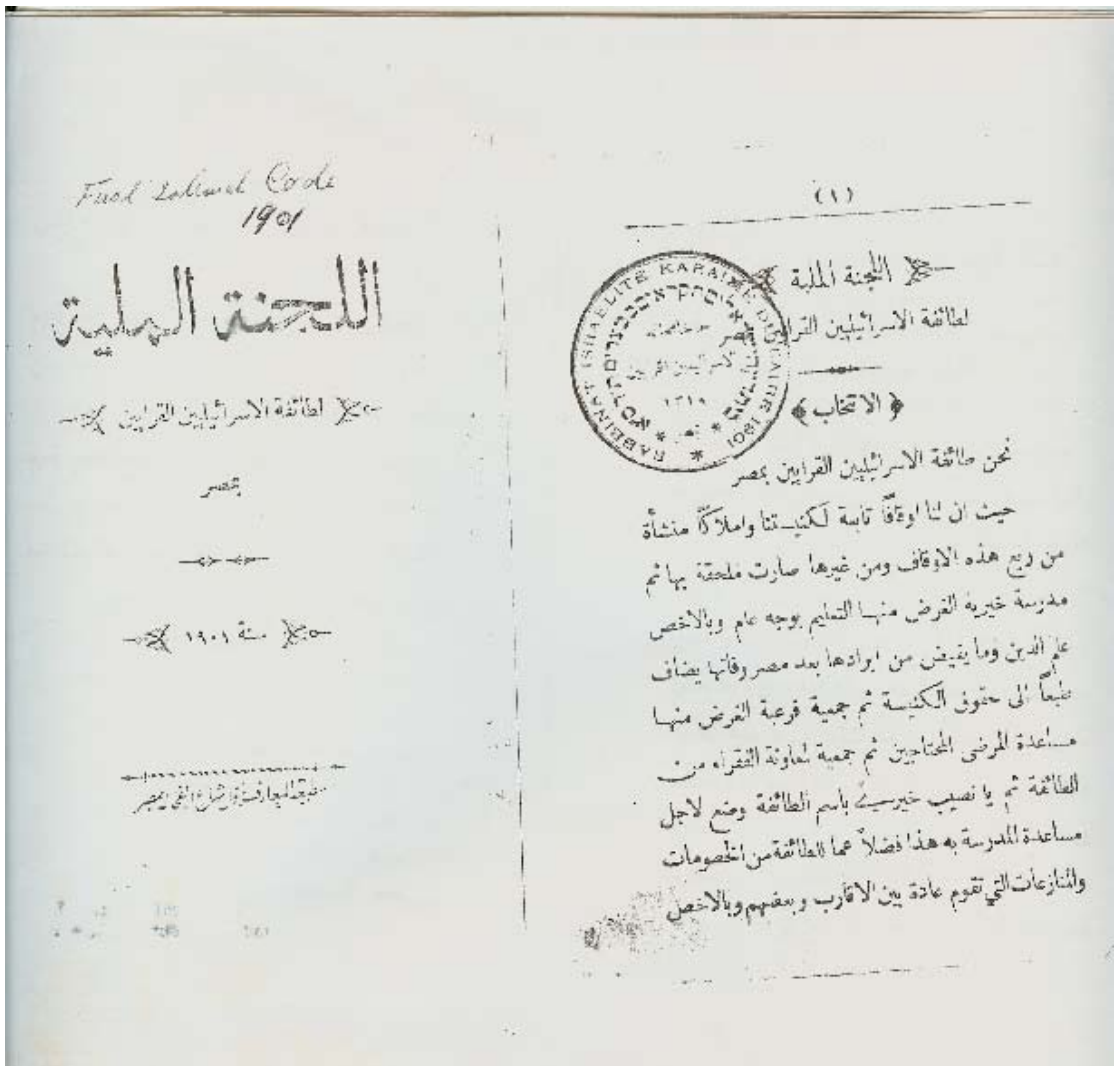 Code
1901
اللجنة الملية
لطائفة الاسرائيليين القرايين
بمصر
سنة ١٩٠١
مطبعة المعارف شارع الفجالة بمصر
(١)
اللجنة الملية
لطائفة الاسرائيليين القرايين بمصر
﴿ الانتخاب ﴾
RABBINAT ISRAELITE KARAIME DU CAIRE 1901
الاسرائيليين القرايين
١٣١٩
نحن طائفة الاسرائيليين القرايين بمصر
حيث ان لنا اوقافاً تابعة لكنيستنا واملاكاً منشأة
من ريع هذه الاوقاف ومن غيرها صارت ملحقة بها ثم
مدرسة خيرية الغرض منها التعليم بوجه عام وبالاخص
علم الدين وما يفيض من ايرادها بعد مصروفاتها يضاف
طبعاً الى حقوق الكنيسة ثم جمعية فرعية الغرض منها
مساعدة المرضى المحتاجين ثم جمعية لمعاونة الفقراء من
الطائفة ثم يا نصيب خيري باسم الطائفة وضع لاجل
مساعدة المدرسة به هذا فضلاً عما للطائفة من الخصومات
والمنازعات التي تقوم عادة بين الاقارب وبعضهم وبالاخص